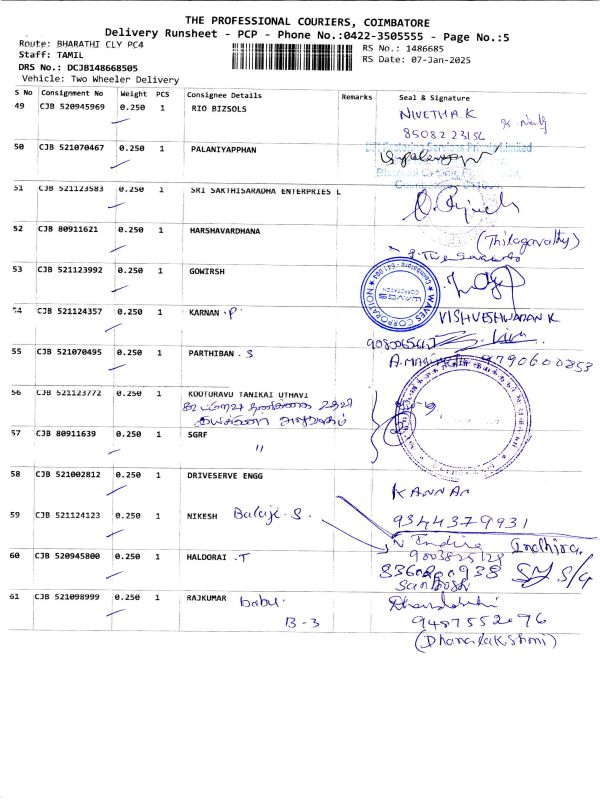 THE PROFESSIONAL COURIERS, COIMBATORE
Delivery Runsheet - PCP - Phone No.:0422-3505555 - Page No.:5
Route: BHARATHI CLY PC4
Staff: TAMIL
DRS No.: DCJB148668505
Vehicle: Two Wheeler Delivery
RS No.: 1486685
RS Date: 07-Jan-2025
S No Consignment No Weight PCS Consignee Details Remarks Seal & Signature
49 CJB 520945969 0.250 1 RIO BIZSOLS NIVETHA.K
8508223156
50 CJB 521070467 0.250 1 PALANIYAPPHAN
51 CJB 521123583 0.250 1 SRI SAKTHISARADHA ENTERPRIES L
52 CJB 80911621 0.250 1 HARSHAVARDHANA (Thilagavathy)
53 CJB 521123992 0.250 1 GOWIRSH
WAVES CORPORATION
54 CJB 521124357 0.250 1 KARNAN .P VISHVESHWARAN K
55 CJB 521070495 0.250 1 PARTHIBAN . S 9790600853
56 CJB 521123772 0.250 1 KOOTURAVU TANIKAI UTHAVI
57 CJB 80911639 0.250 1 SGRF "
58 CJB 521002812 0.250 1 DRIVESERVE ENGG KANNAN
9344379931
59 CJB 521124123 0.250 1 NIKESH Balaji. S. N Indira Indhira.
9003825128
60 CJB 520945800 0.250 1 HALDORAI .T
Santhosh
61 CJB 521098999 0.250 1 RAJKUMAR babu.
B-3 9487552096
(Dhanalakshmi)